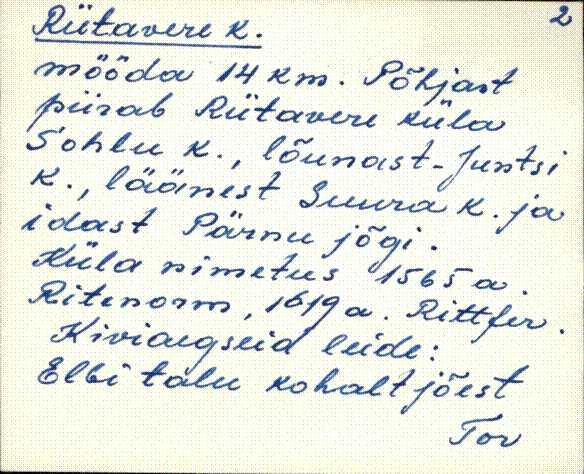 Rütavere k. 2
mööda 14 km. Põhjast
piirab Rütavere küla
Sohlu k., lõunast - Juntsi
k., läänest Suura k. ja
idast Pärnu jõgi.
Küla nimetus 1565 a.
Ritenorm, 1619 a. Rittfer.
Kiviaegseid leide:
Elbi talu kohalt jõest
Tor